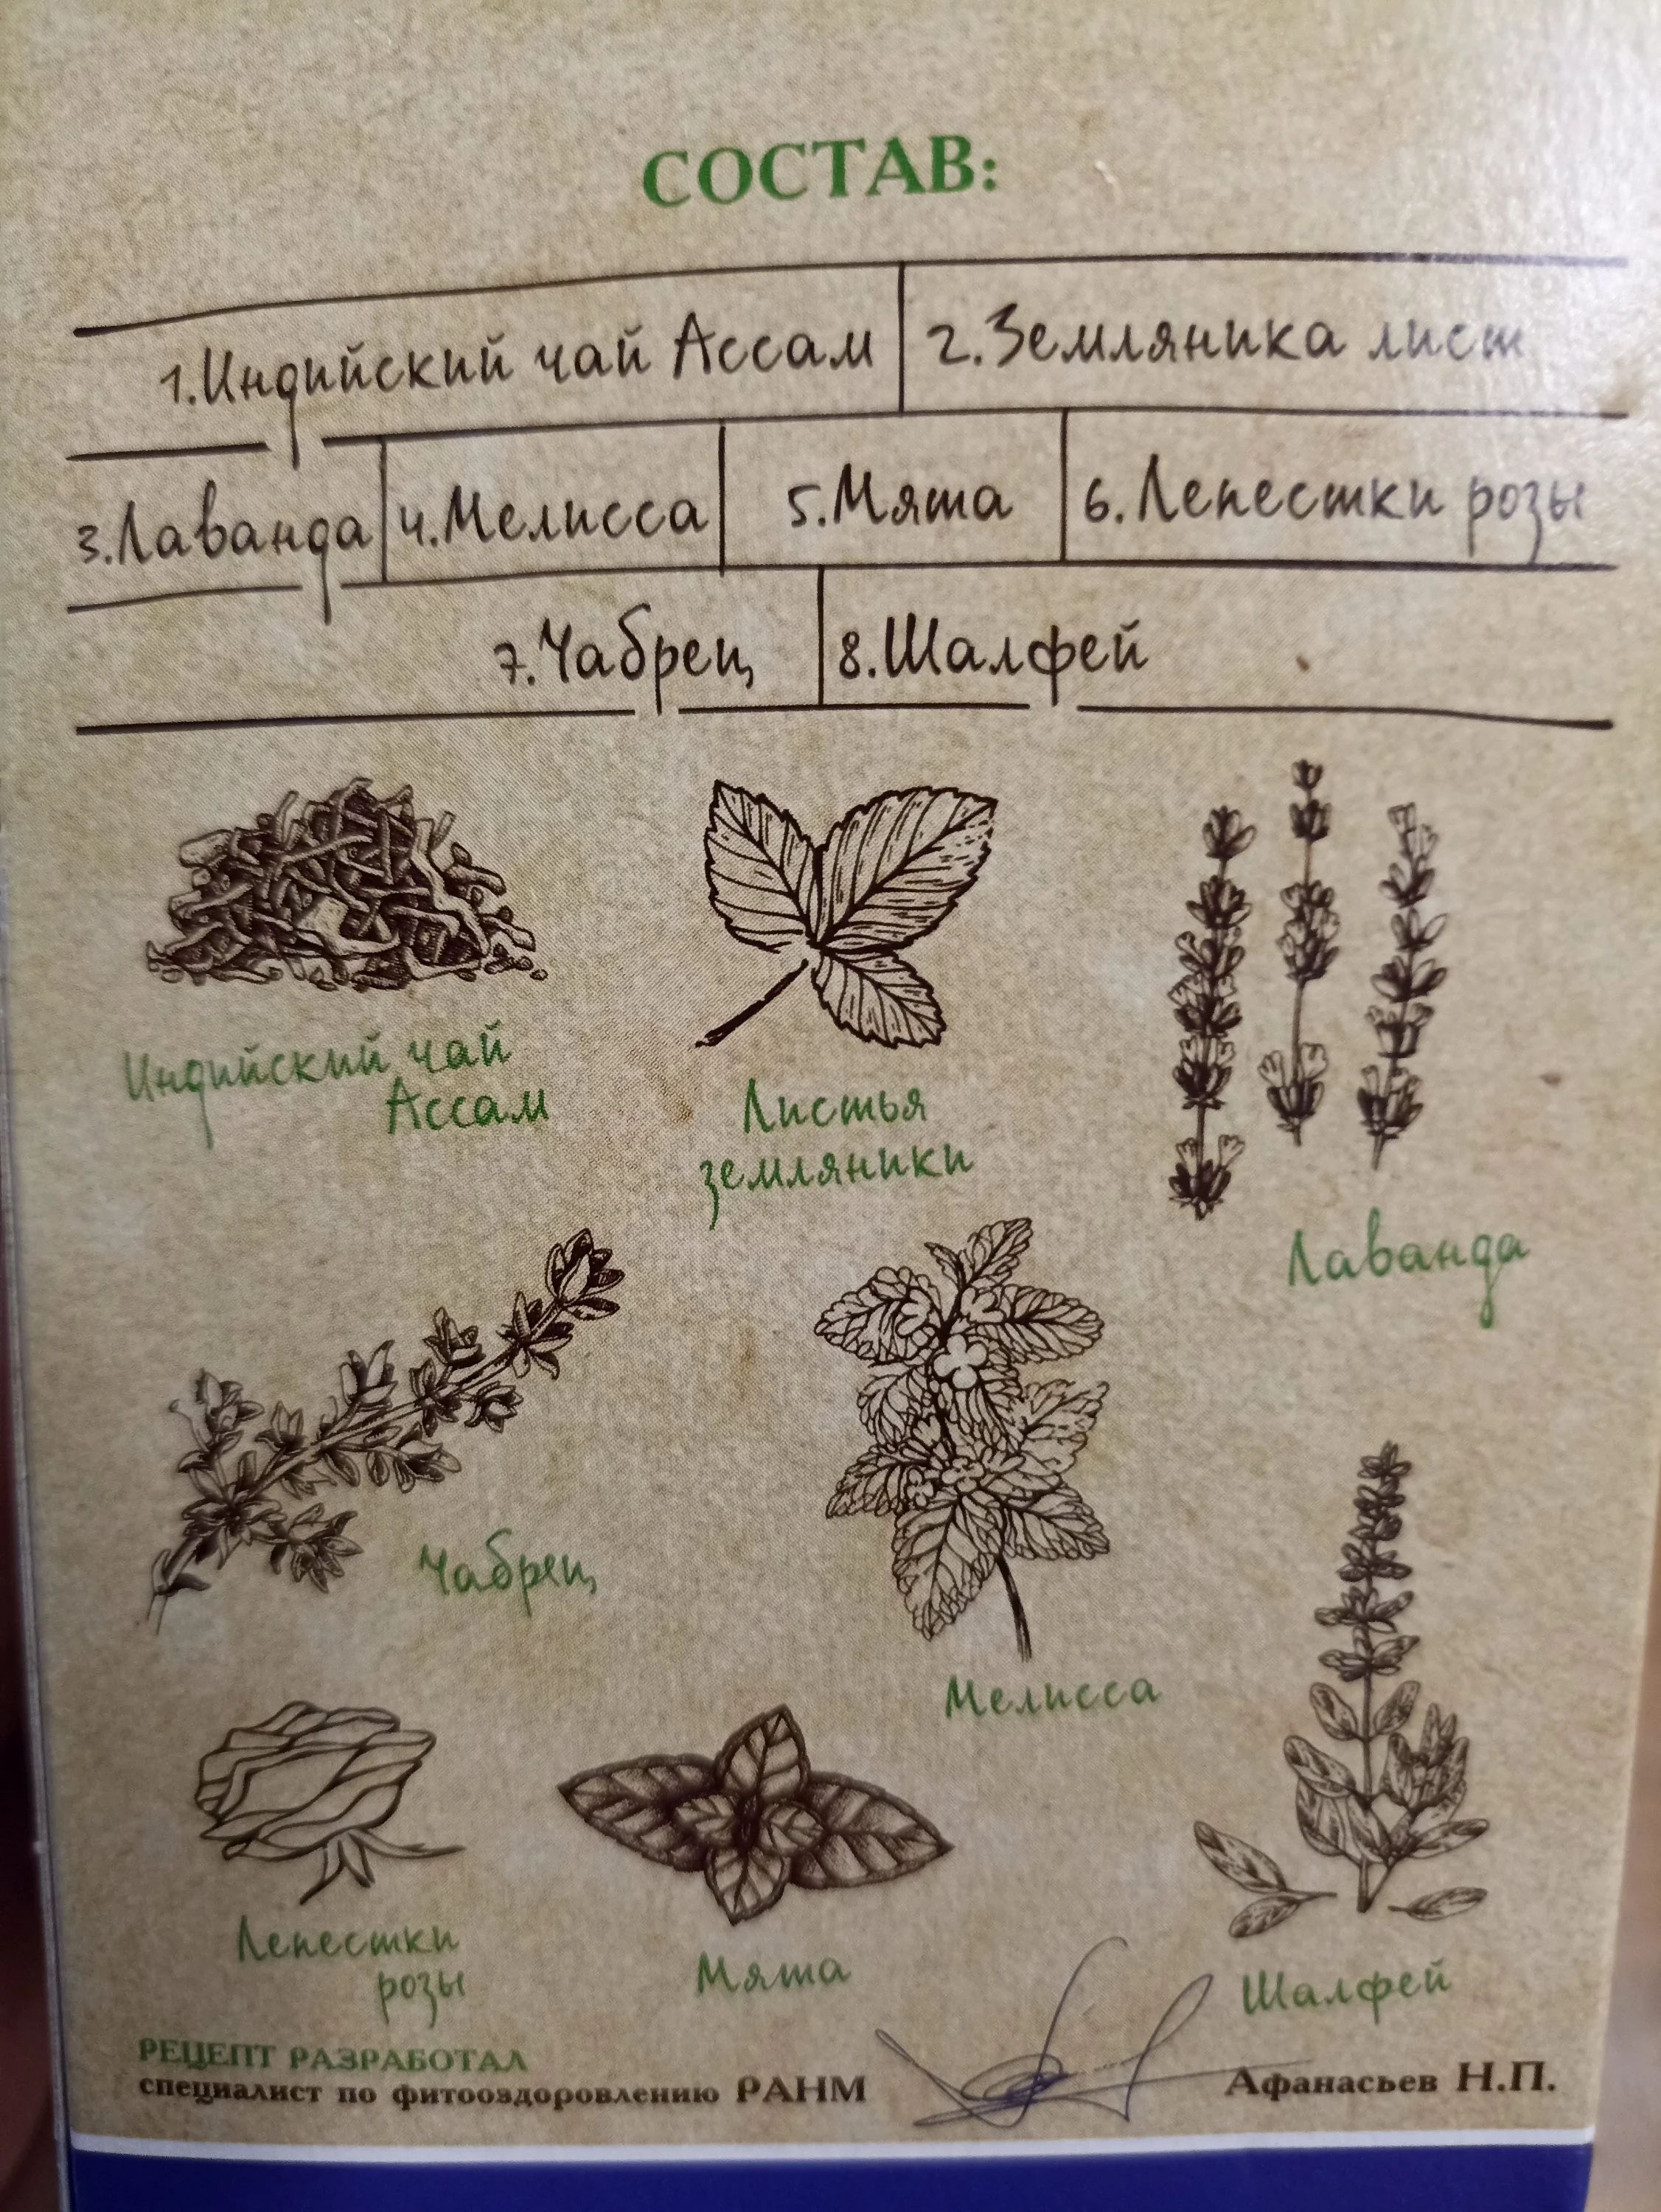 СОСТАВ:
1.Индийский чай Ассам 2.Земляника лист
3.Лаванда 4.Мелисса 5.Мята 6.Лепестки розы
7.Чабрец 8.Шалфей
Индийский чай
Ассам
Листья
земляники
Лаванда
Чабрец
Мелисса
Лепестки
розы
Мята
Шалфей
РЕЦЕПТ РАЗРАБОТАЛ
специалист по фитооздоровлению РАНМ
Афанасьев Н.П.